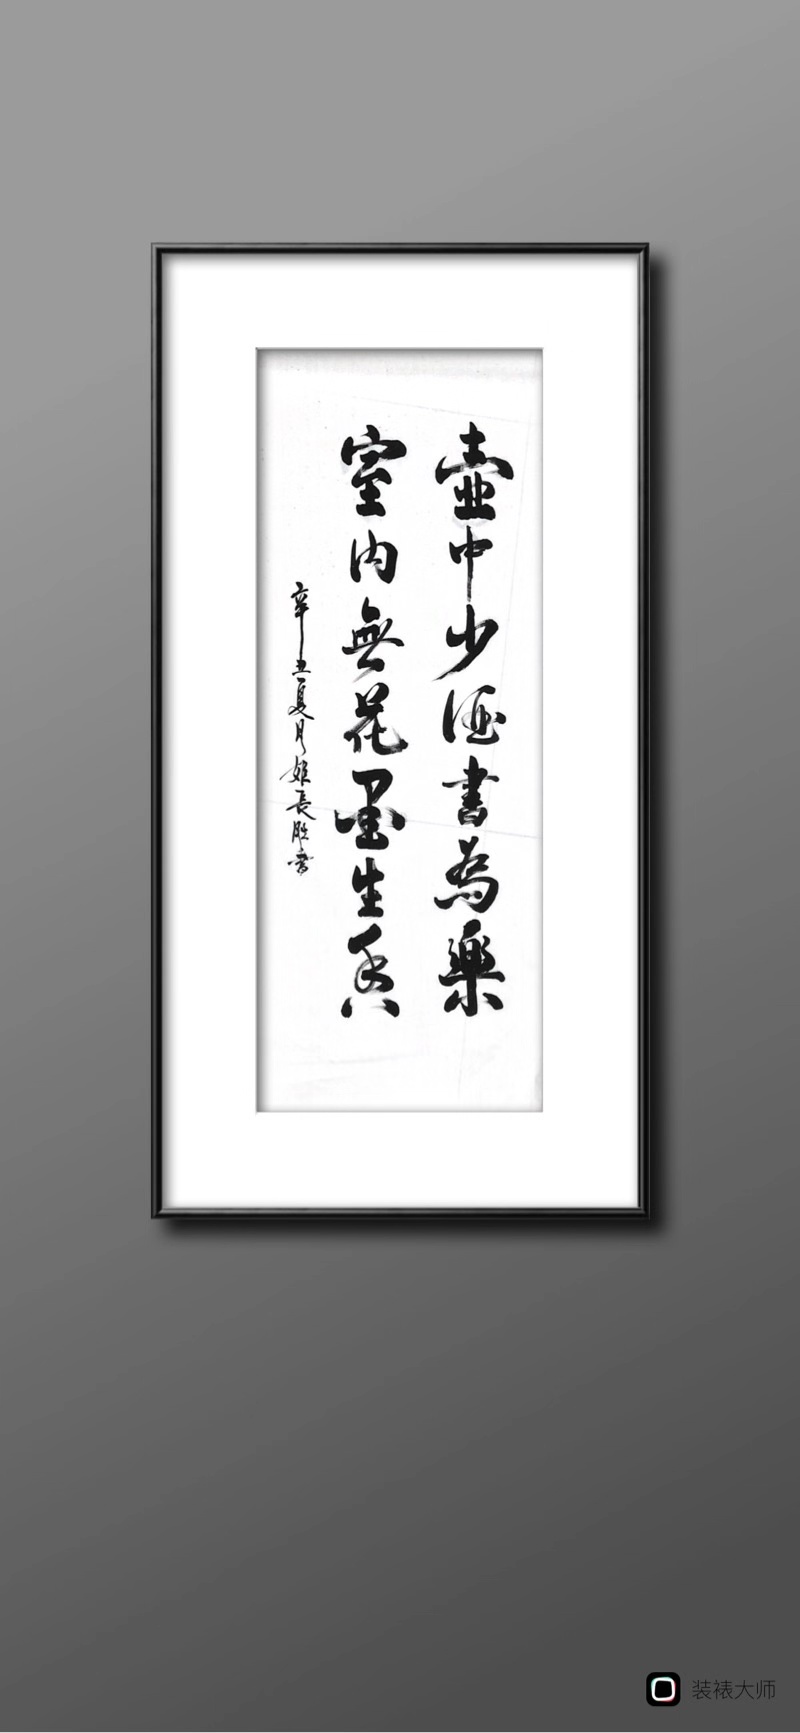 壺中少酒書為樂
室內無花墨生香
辛丑夏月姬長勝書
装裱大师